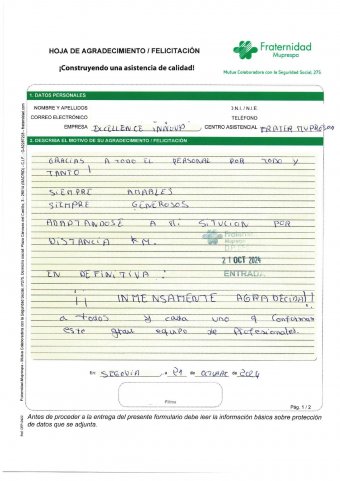 HOJA DE AGRADECIMIENTO / FELICITACIÓN
¡Construyendo una asistencia de calidad!
Fraternidad
Muprespa
Mutua Colaboradora con la Seguridad Social, 275
1. DATOS PERSONALES
NOMBRE Y APELLIDOS
D.N.I./N.I.E.
CORREO ELECTRÓNICO
TELÉFONO
EMPRESA EXCELLENCE INNOVA CENTRO ASISTENCIAL FRATER MUPRESPA
2. DESCRIBA EL MOTIVO DE SU AGRADECIMIENTO / FELICITACIÓN
GRACIAS A TODO EL PERSONAL POR TODO Y
TANTO!
SIEMPRE AMABLES
SIEMPRE GENEROSOS
ADAPTANDOSE A MI SITUCION POR
DISTANCIA KM.
Fraternidad
Muprespa
21 OCT 2024
ENTRADA
EN DEFINITIVA:
¡¡ INMENSAMENTE AGRADECIDA!!
a todos y cada uno q conforman
este gran equipo de Profesionales.
En SEGOVIA a 21 de OCTUBRE de 2024
Firma
Pág. 1 / 2
Antes de proceder a la entrega del presente formulario debe leer la información básica sobre protección
de datos que se adjunta.